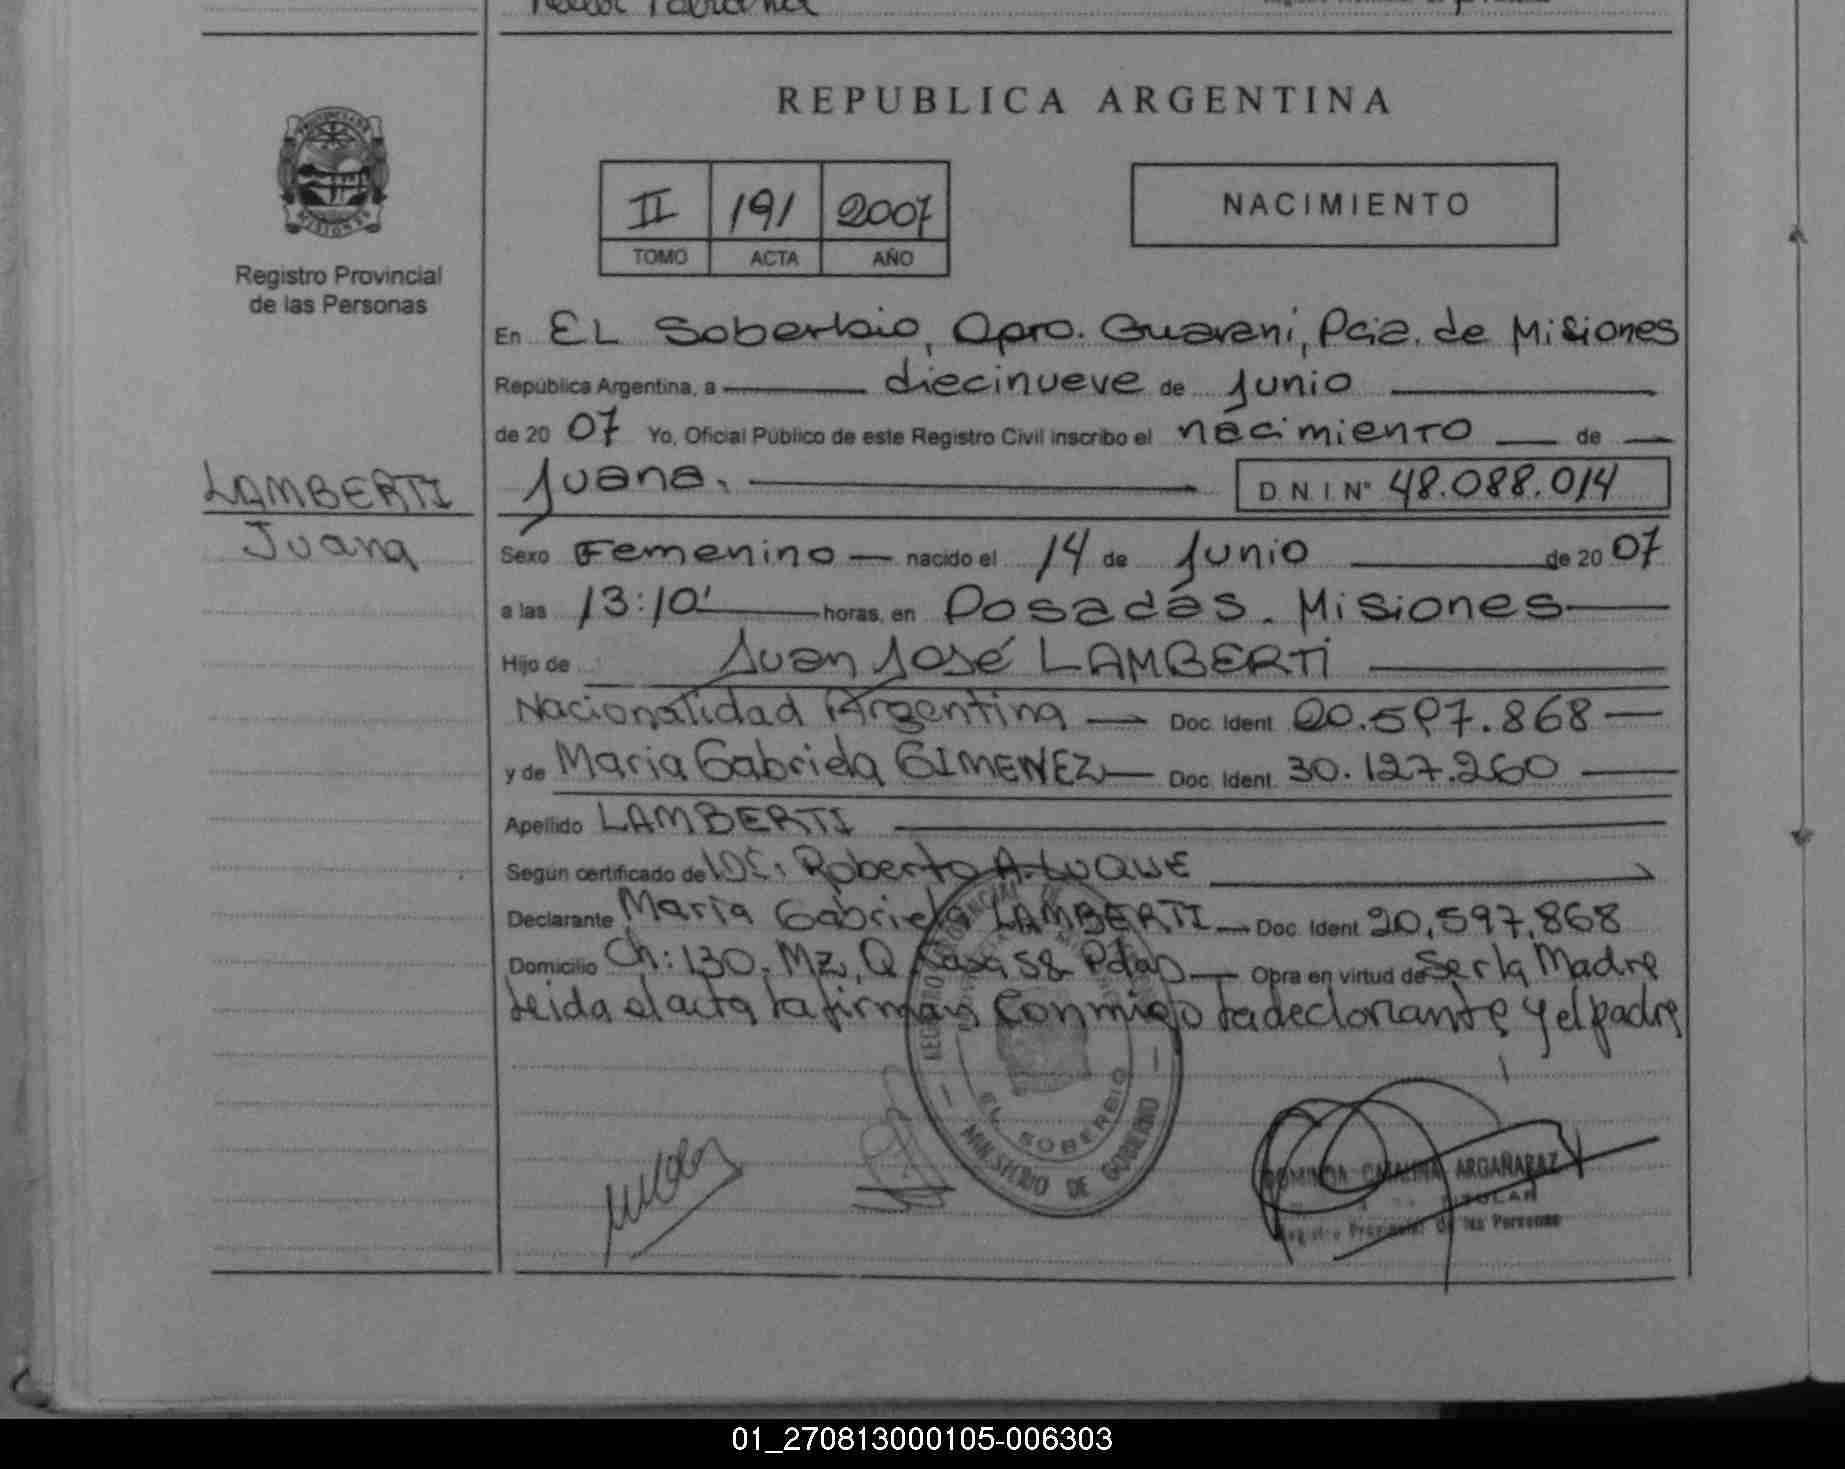 REPUBLICA ARGENTINA
PROVINCIA DE
MISIONES
Registro Provincial
de las Personas
II 191 2007
TOMO ACTA AÑO
NACIMIENTO
En EL Soberbio, Dpto. Guarani, Pcia. de Misiones
República Argentina, a diecinueve de Junio
de 20 07 Yo, Oficial Público de este Registro Civil inscribo el nacimiento de
LAMBERTI
Juana
Juana. D. N. I. N° 48.088.014
Sexo Femenino nacido el 14 de Junio de 20 07
a las 13:10' horas, en Posadas. Misiones
Hijo de Juan José LAMBERTI
Nacionalidad Argentina Doc. Ident. 20.597.868
y de Maria Gabriela GIMENEZ Doc. Ident. 30.127.260
Apellido LAMBERTI
Según certificado de Roberto A. LUQUE
Declarante Maria Gabriela LAMBERTI Doc. Ident. 20.597.868
Domicilio Ch: 130. Mz. Q Casa 58 Pdas Obra en virtud de Ser la Madre
Leida el acta la firman Conmigo la declarante y el padre
REGISTRO PROVINCIAL DE
EL SOBERBIO
MINISTERIO DE GOBIERNO
CATALINA ARGAÑARAZ
TITULAR
Registro Provincial de las Personas
01_270813000105-006303